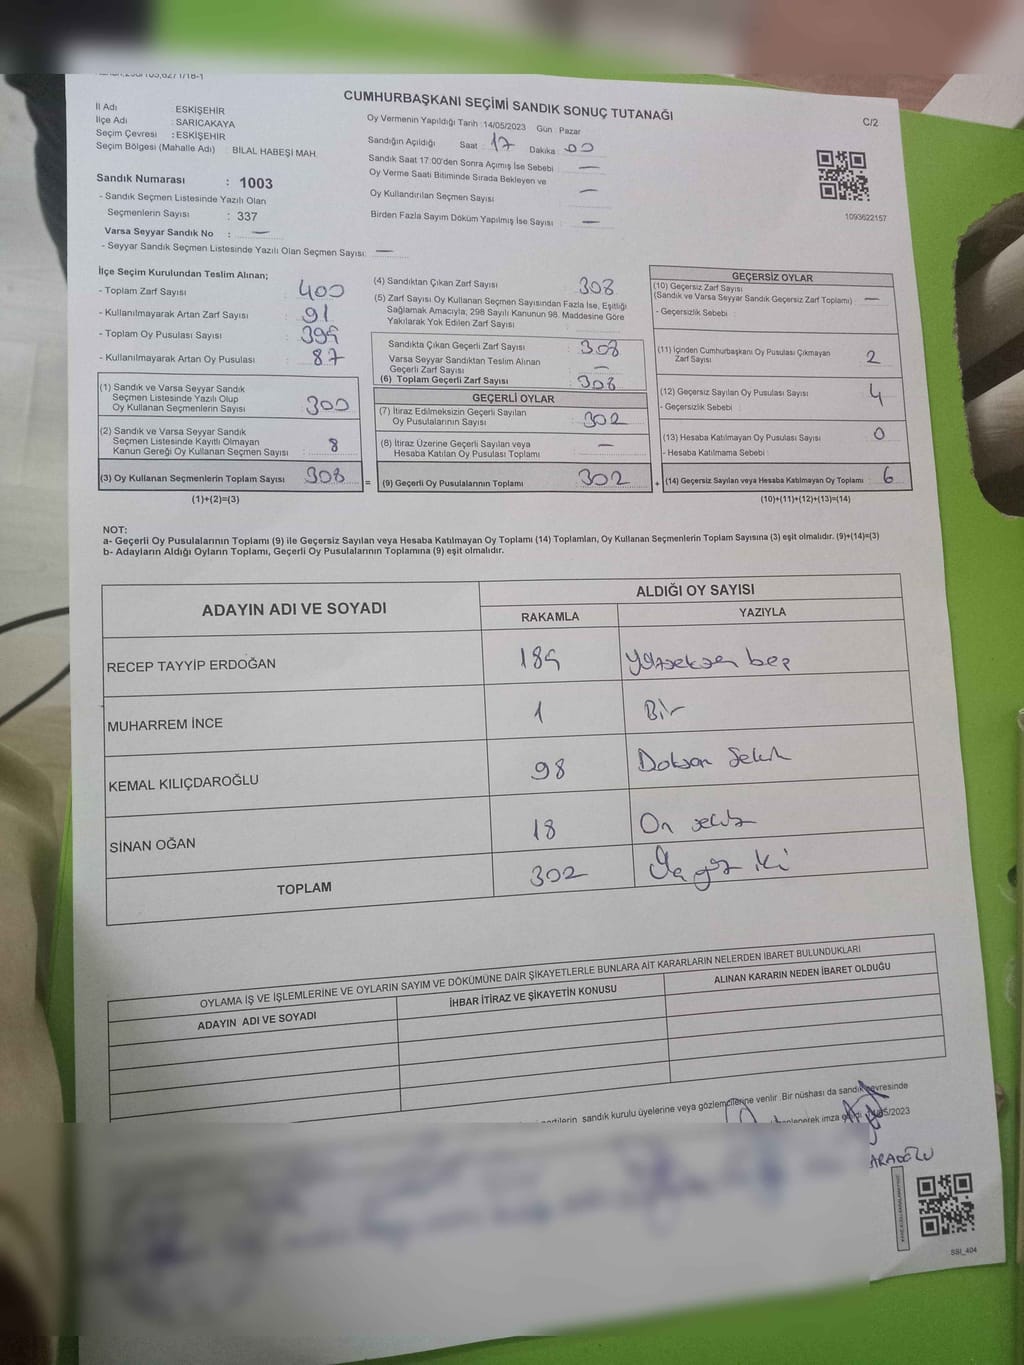 CUMHURBAŞKANI SEÇİMİ SANDIK SONUÇ TUTANAĞI
C/2
İl Adı : ESKİŞEHİR
İlçe Adı : SARICAKAYA
Seçim Çevresi : ESKİŞEHİR
Seçim Bölgesi (Mahalle Adı) : BİLAL HABEŞİ MAH.
Sandık Numarası : 1003
- Sandık Seçmen Listesinde Yazılı Olan
Seçmenlerin Sayısı : 337
Varsa Seyyar Sandık No : —
- Seyyar Sandık Seçmen Listesinde Yazılı Olan Seçmen Sayısı: —
Oy Vermenin Yapıldığı Tarih : 14/05/2023 Gün : Pazar
Sandığın Açıldığı Saat : 17 Dakika : 00
Sandık Saat 17:00'den Sonra Açımış İse Sebebi : —
Oy Verme Saati Bitiminde Sırada Bekleyen ve
Oy Kullandırılan Seçmen Sayısı : —
Birden Fazla Sayım Döküm Yapılmış İse Sayısı : —
1093622157
İlçe Seçim Kurulundan Teslim Alınan;
- Toplam Zarf Sayısı : 400
- Kullanılmayarak Artan Zarf Sayısı : 91
- Toplam Oy Pusulası Sayısı : 395
- Kullanılmayarak Artan Oy Pusulası : 87
(1) Sandık ve Varsa Seyyar Sandık
Seçmen Listesinde Yazılı Olup
Oy Kullanan Seçmenlerin Sayısı : 300
(2) Sandık ve Varsa Seyyar Sandık
Seçmen Listesinde Kayıtlı Olmayan
Kanun Gereği Oy Kullanan Seçmen Sayısı : 8
(3) Oy Kullanan Seçmenlerin Toplam Sayısı : 308
(1)+(2)=(3)
(4) Sandıktan Çıkan Zarf Sayısı : 308
(5) Zarf Sayısı Oy Kullanan Seçmen Sayısından Fazla İse, Eşitliği
Sağlamak Amacıyla; 298 Sayılı Kanunun 98. Maddesine Göre
Yakılarak Yok Edilen Zarf Sayısı :
Sandıkta Çıkan Geçerli Zarf Sayısı : 308
Varsa Seyyar Sandıktan Teslim Alınan
Geçerli Zarf Sayısı : —
(6) Toplam Geçerli Zarf Sayısı : 308
GEÇERLİ OYLAR
(7) İtiraz Edilmeksizin Geçerli Sayılan
Oy Pusulalarının Sayısı : 302
(8) İtiraz Üzerine Geçerli Sayılan veya
Hesaba Katılan Oy Pusulası Toplamı : —
= (9) Geçerli Oy Pusulalarının Toplamı : 302
GEÇERSİZ OYLAR
(10) Geçersiz Zarf Sayısı
(Sandık ve Varsa Seyyar Sandık Geçersiz Zarf Toplamı) : —
- Geçersizlik Sebebi :
(11) İçinden Cumhurbaşkanı Oy Pusulası Çıkmayan
Zarf Sayısı : 2
(12) Geçersiz Sayılan Oy Pusulası Sayısı : 4
- Geçersizlik Sebebi :
(13) Hesaba Katılmayan Oy Pusulası Sayısı : 0
- Hesaba Katılmama Sebebi :
+ (14) Geçersiz Sayılan veya Hesaba Katılmayan Oy Toplamı : 6
(10)+(11)+(12)+(13)=(14)
NOT:
a- Geçerli Oy Pusulalarının Toplamı (9) ile Geçersiz Sayılan veya Hesaba Katılmayan Oy Toplamı (14) Toplamları, Oy Kullanan Seçmenlerin Toplam Sayısına (3) eşit olmalıdır. (9)+(14)=(3)
b- Adayların Aldığı Oyların Toplamı, Geçerli Oy Pusulalarının Toplamına (9) eşit olmalıdır.
ADAYIN ADI VE SOYADI
ALDIĞI OY SAYISI
RAKAMLA YAZIYLA
RECEP TAYYİP ERDOĞAN 185 Yüzseksen beş
MUHARREM İNCE 1 Bir
KEMAL KILIÇDAROĞLU 98 Doksan Sekiz
SİNAN OĞAN 18 On sekiz
TOPLAM 302 Üç yüz iki
OYLAMA İŞ VE İŞLEMLERİNE VE OYLARIN SAYIM VE DÖKÜMÜNE DAİR ŞİKAYETLERLE BUNLARA AİT KARARLARIN NELERDEN İBARET BULUNDUKLARI
ADAYIN ADI VE SOYADI
İHBAR İTİRAZ VE ŞİKAYETİN KONUSU
ALINAN KARARIN NEDEN İBARET OLDUĞU
sandık kurulu üyelerine veya gözlemcilerine verilir. Bir nüshası da sandık çevresinde
imza
SSİ_404